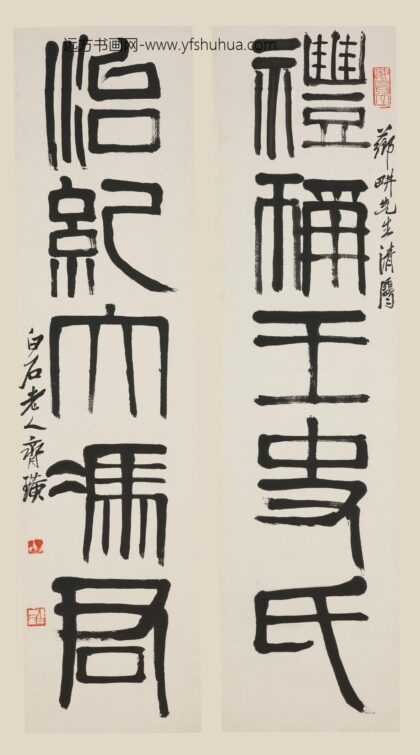 远方书画网-www.yfshuhua.com
薌畊先生清屬
禮稱王史氏
治紀大馮君
白石老人齊璜